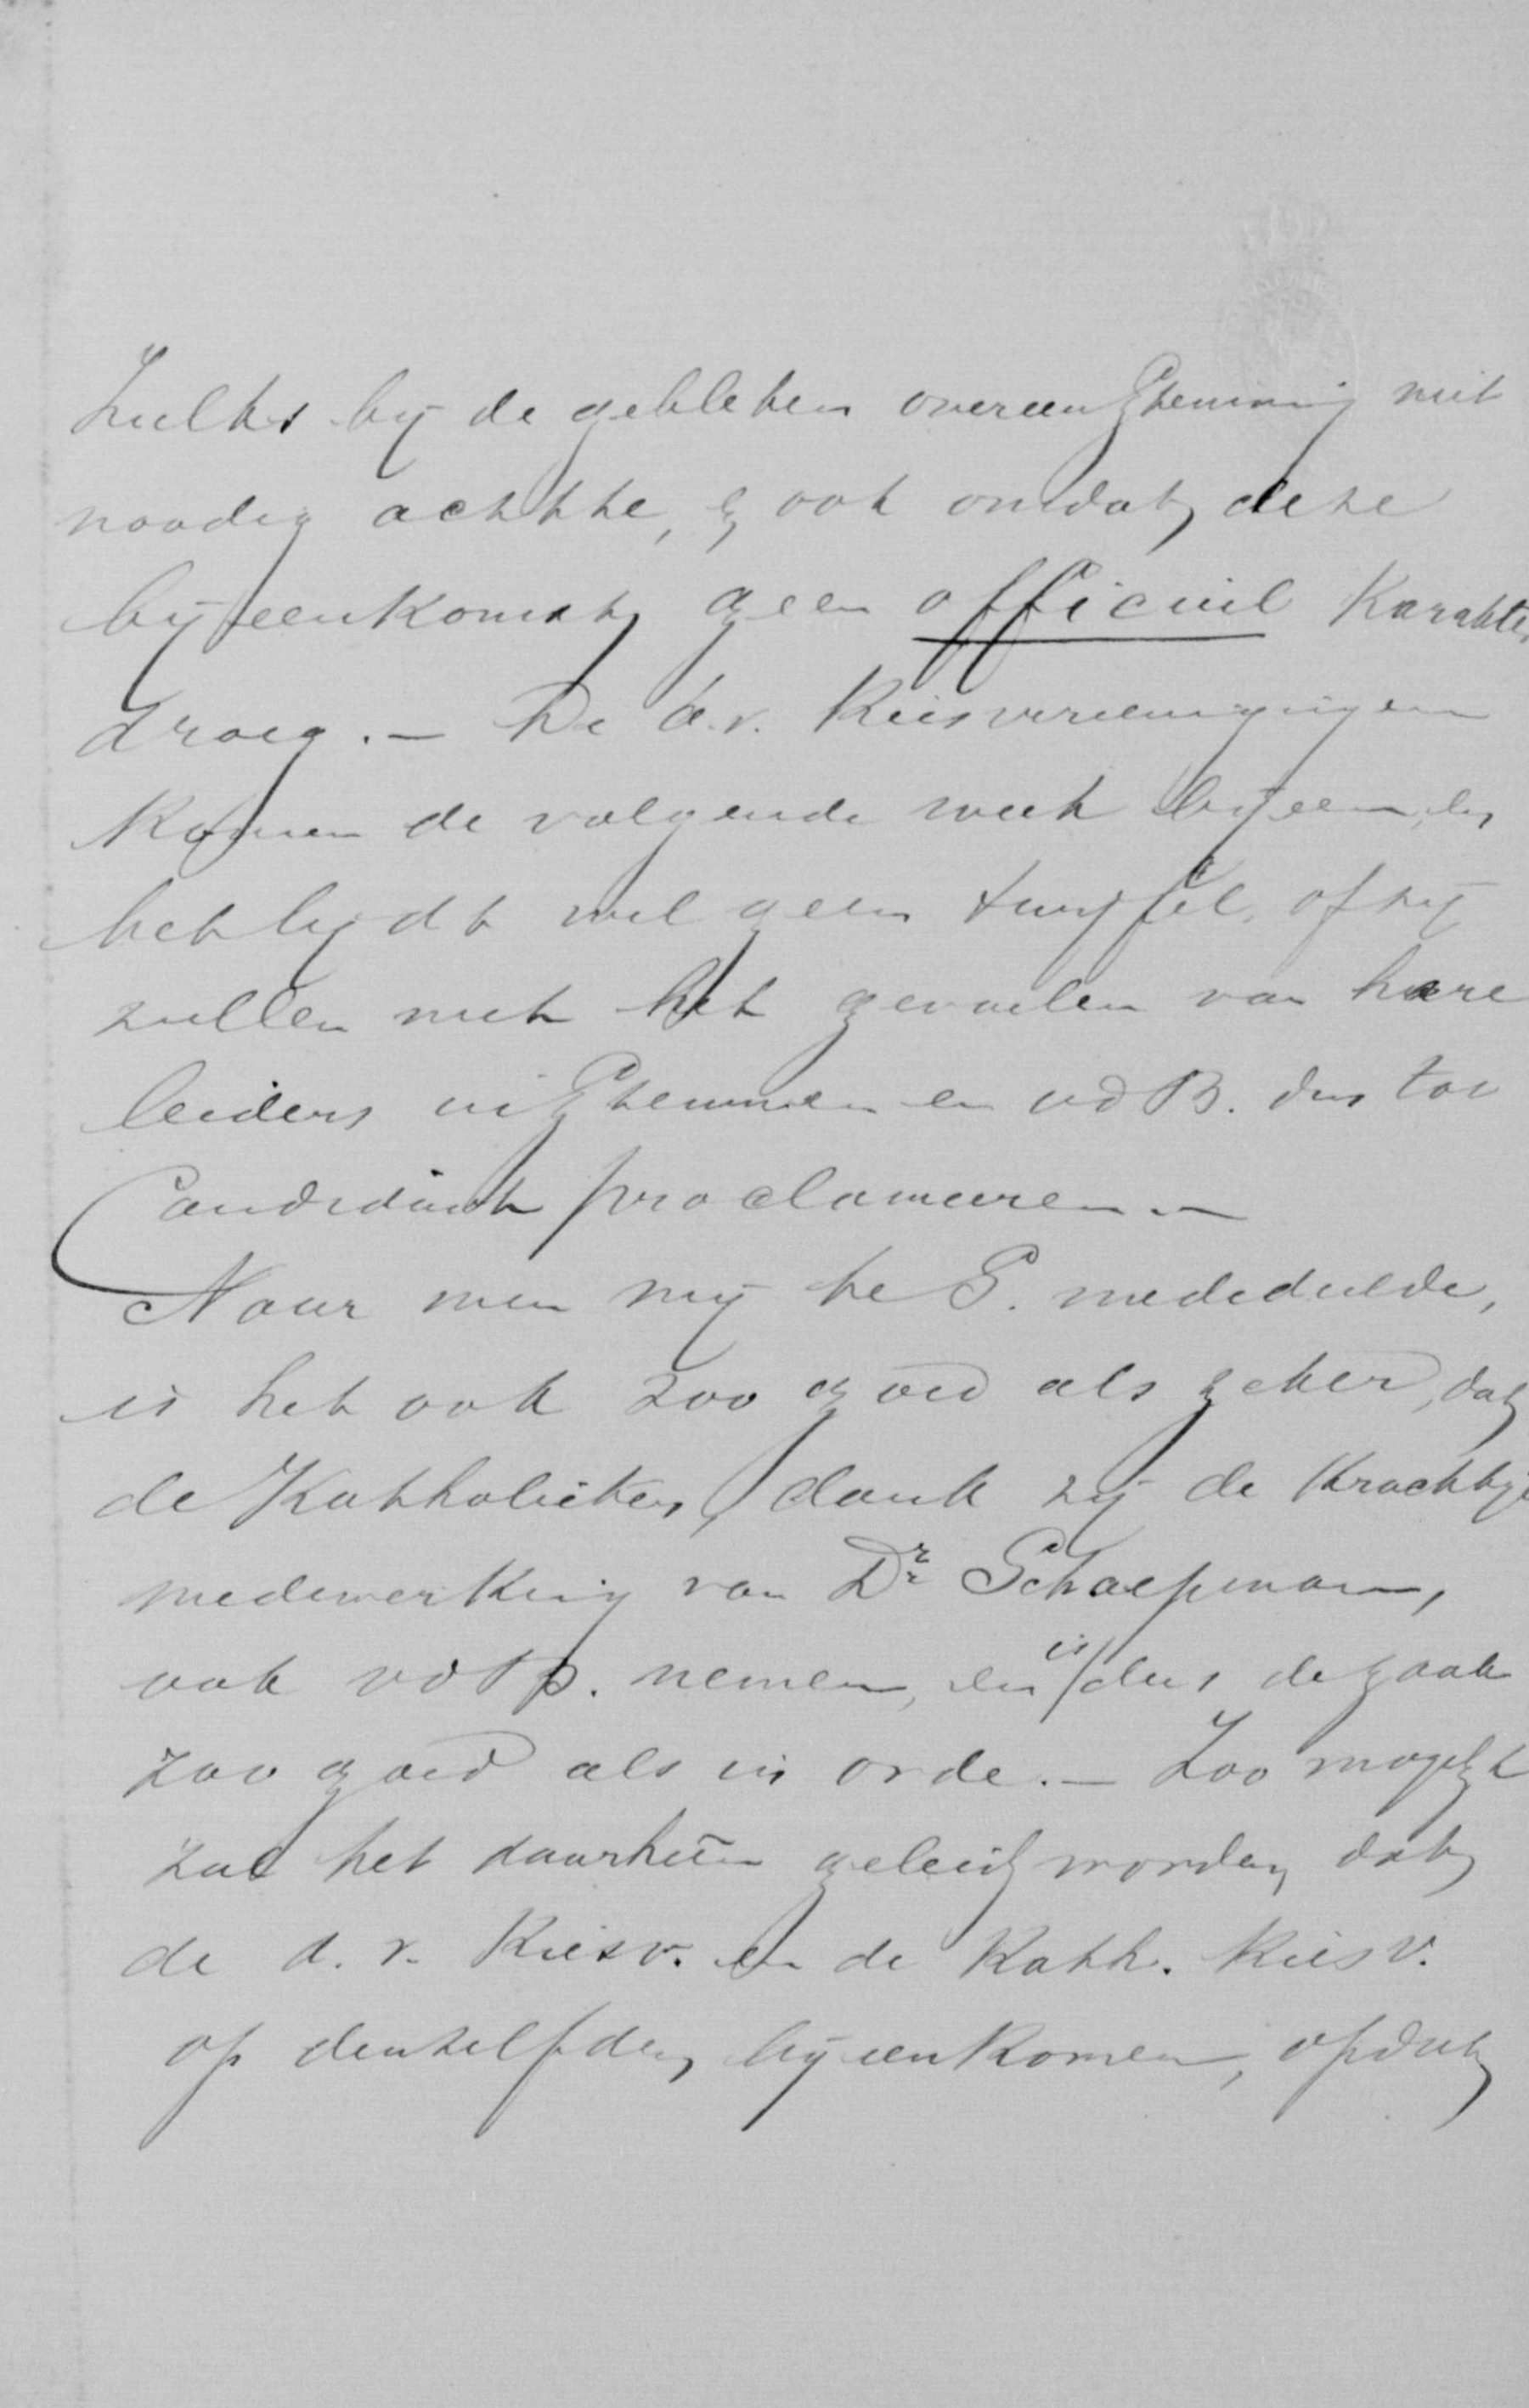 zulks bij de gebleken overeenstemming niet
noodig achtte, & ook omdat deze
bijeenkomst geen officieel karakter
droeg. – De a.r. Kiesvereenigingen
komen de volgende week bijeen, en
het lijdt wel geen twijfel, of zij
zullen met het gevoelen van hare
leiders instemmen en vd B. dus tot
Candidaat proclameeren. –
Naar men mij te G. mededeelde,
is het ook zoo goed als zeker, dat
de Katholieken, dank zij de krachtige
medewerking van Dr Schaepman,
ook vd B. nemen, en is dus de zaak
zoo goed als in orde. – Zoo mogelijk
zal het daarheen geleid worden, dat
de a.r. Kiesv. en de Kath. Kiesv.
op denzelfden bijeenkomen, opdat